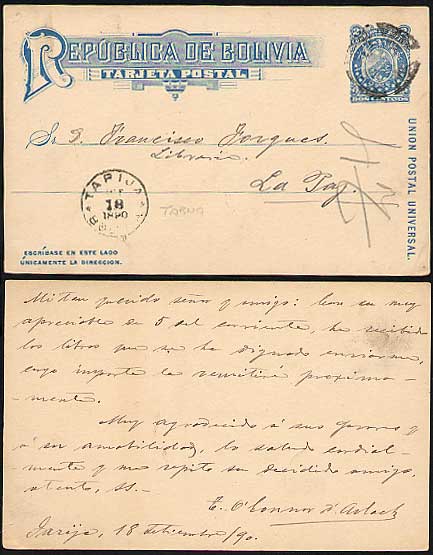 REPÚBLICA DE BOLIVIA
TARJETA POSTAL
DOS CENTAVOS
Sr. D. Francisco Jorques.
Librería
La Paz.
TARIJA
18
1890
TARIJA
UNION POSTAL UNIVERSAL.
ESCRÍBASE EN ESTE LADO
ÚNICAMENTE LA DIRECCION.
Mi tan querido señor y amigo: Con su muy
apreciable de 5 del corriente, he recibido
los libros que se ha dignado enviarme,
cuyo importe le remitiré próxima-
-mente.
Muy agradecido á sus
y á su amabilidad, lo saludo cordial-
-mente y me repito su decidido amigo,
atento, SS.-
T. O'Connor d'Arlach
Tarija, 18 Setiembre/90.